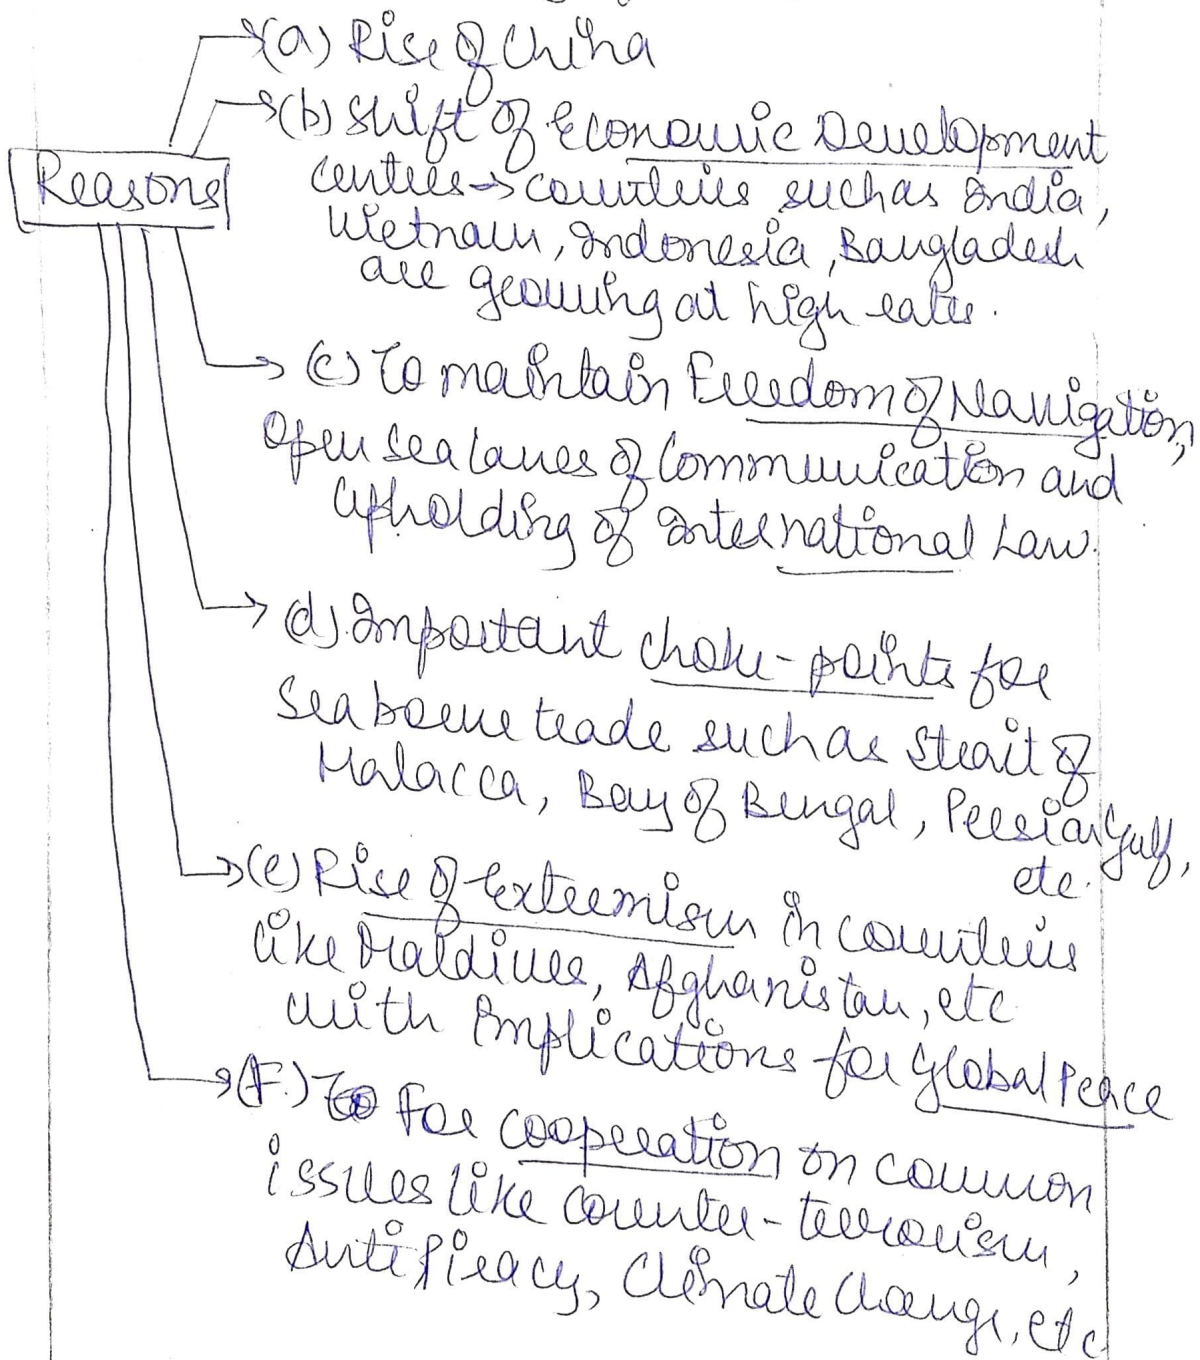 (a) Rise of China
(b) Shift of Economic Development
Reasons
centres → countries such as India,
Vietnam, Indonesia, Bangladesh
are growing at high rates.
(c) To maintain Freedom of Navigation,
open sea lanes of Communication and
upholding of International Law.
(d) Important choke-points for
Sea borne trade such as Strait of
Malacca, Bay of Bengal, Persian Gulf,
etc.
(e) Rise of Extremism in countries
like Maldives, Afghanistan, etc
with Implications for Global Peace
(F.) For cooperation on common
issues like counter-terrorism,
Anti Piracy, Climate Change, etc